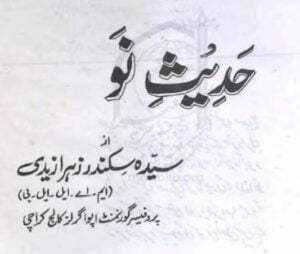 حَدِیْثِ نَو
از
سیّدہ سکندر زہرا زیدی
(ایم - اے - ایل - ایل - بی)
پروفیسر گورنمنٹ اپوا گرلز کالج کراچی